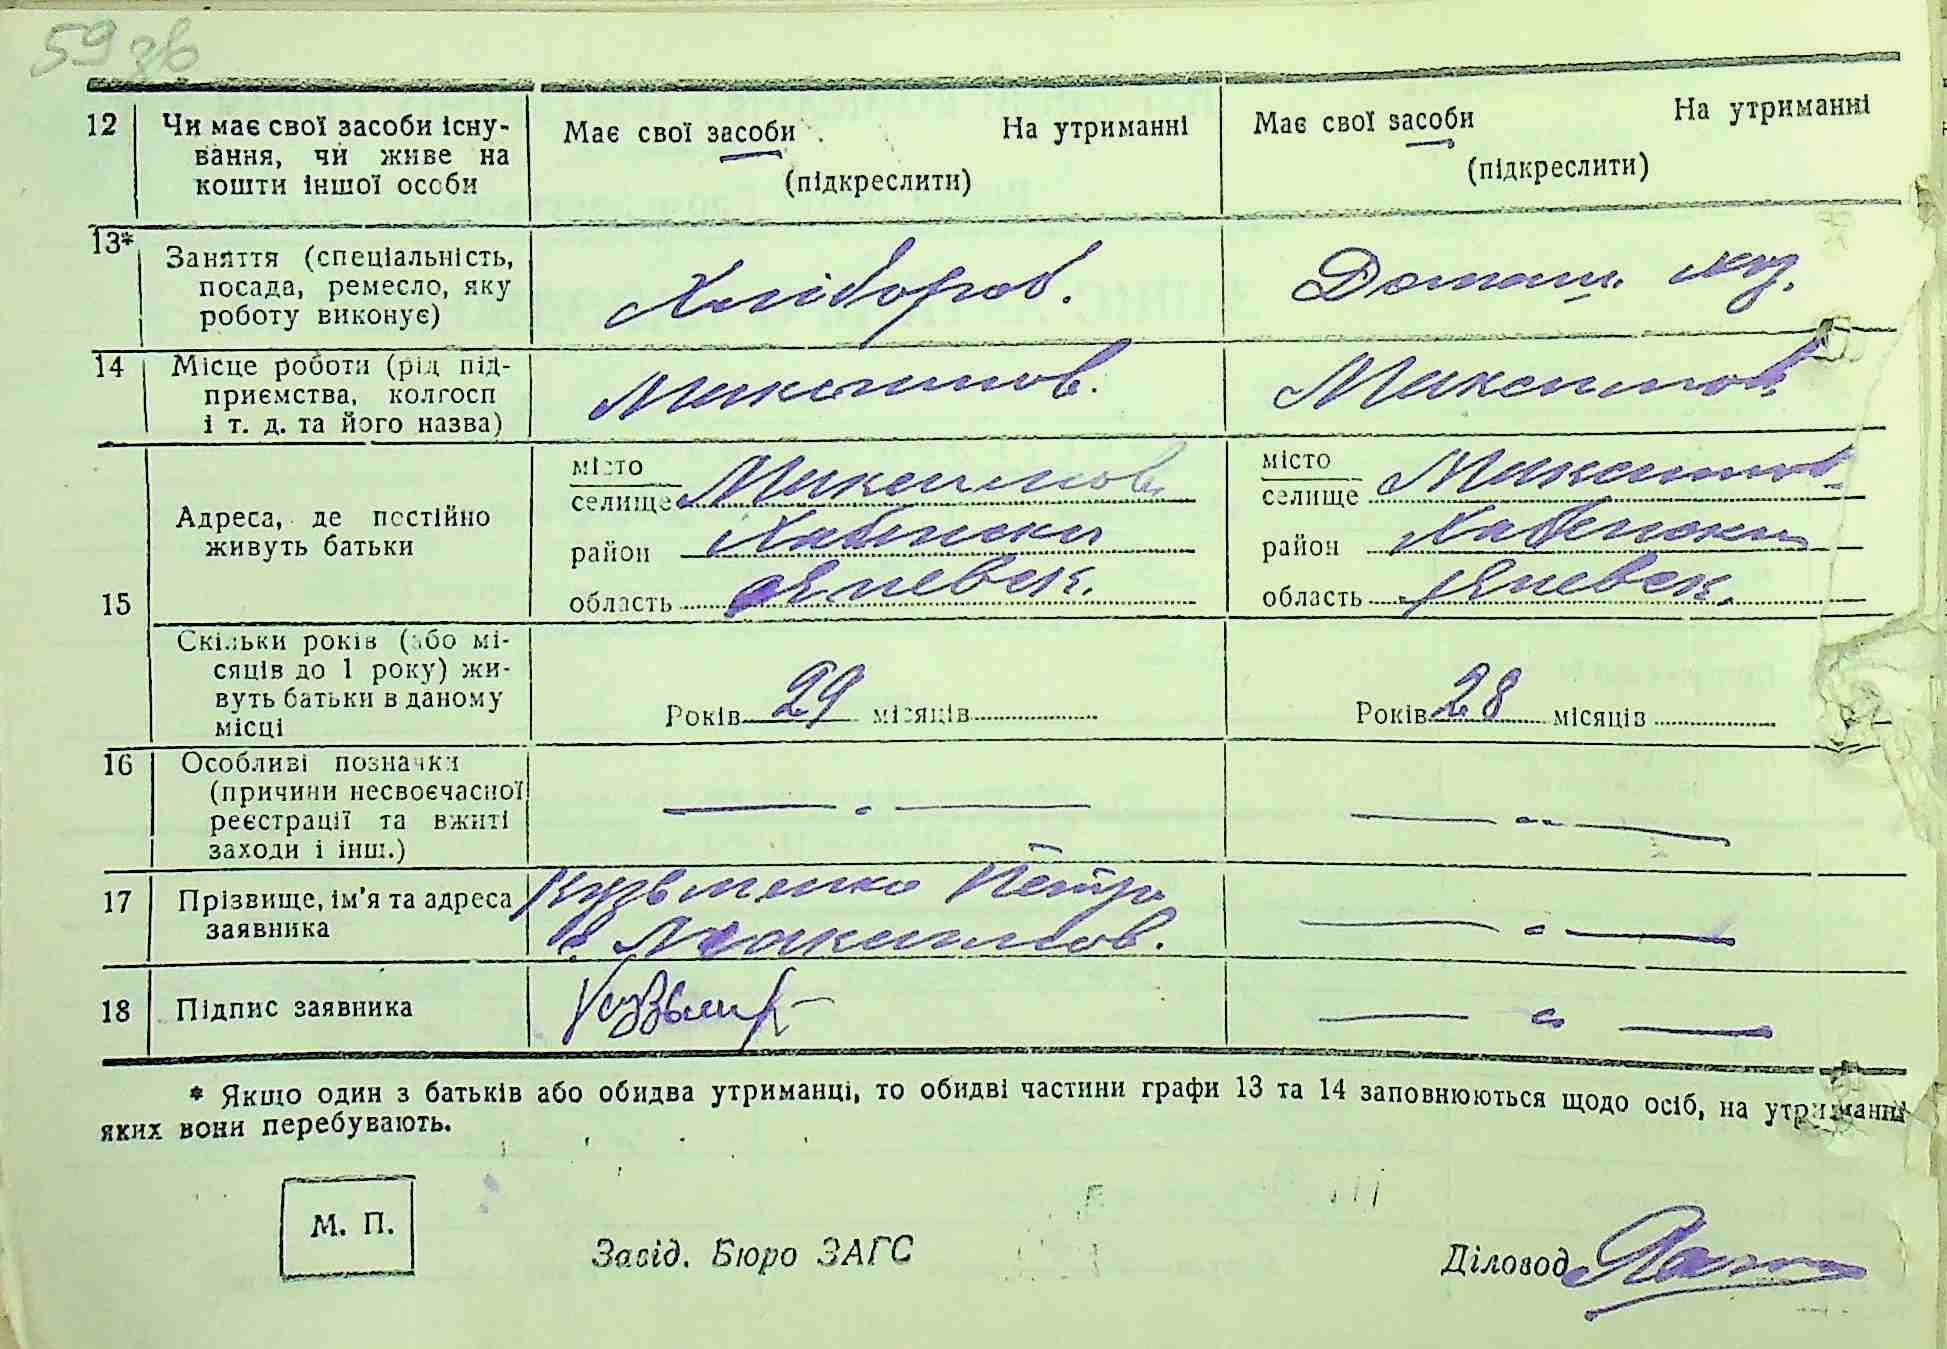 59 зв
12 Чи має свої засоби існу- Має свої засоби На утриманні Має свої засоби На утриманні
вання, чи живе на
кошти іншої особи (підкреслити) (підкреслити)
13* Заняття (спеціальність, Хлібороб. Домаш. хоз.
посада, ремесло, яку
роботу виконує)
14 Місце роботи (рід під- Максимов. Максимов.
приємства, колгосп
і т. д. та його назва)
місто Максимов. місто Максимов.
селище селище
15 Адреса, де постійно район Хабенски район Хабенски
живуть батьки
область Киевск. область Киевск.
Скільки років (або мі-
сяців до 1 року) жи-
вуть батьки в даному Років 29 місяців Років 28 місяців
місці
16 Особливі позначки
(причини несвоєчасної
реєстрації та вжиті
заходи і інш.)
17 Прізвище, ім'я та адреса Кузьменко Петро
заявника с. Максимов.
18 Підпис заявника
* Якщо один з батьків або обидва утриманці, то обидві частини графи 13 та 14 заповнюються щодо осіб, на утриманні
яких вони перебувають.
М. П.
Завід. Бюро ЗАГС Діловод